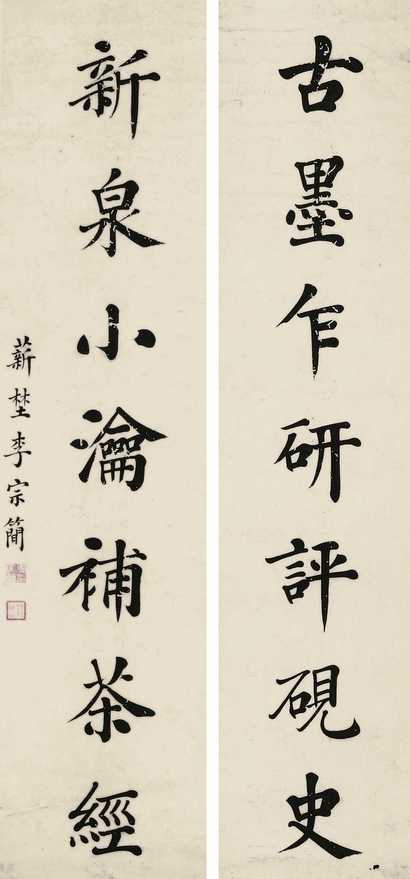 古墨乍研評硯史
新泉小瀹補茶經
薪埜李宗簡